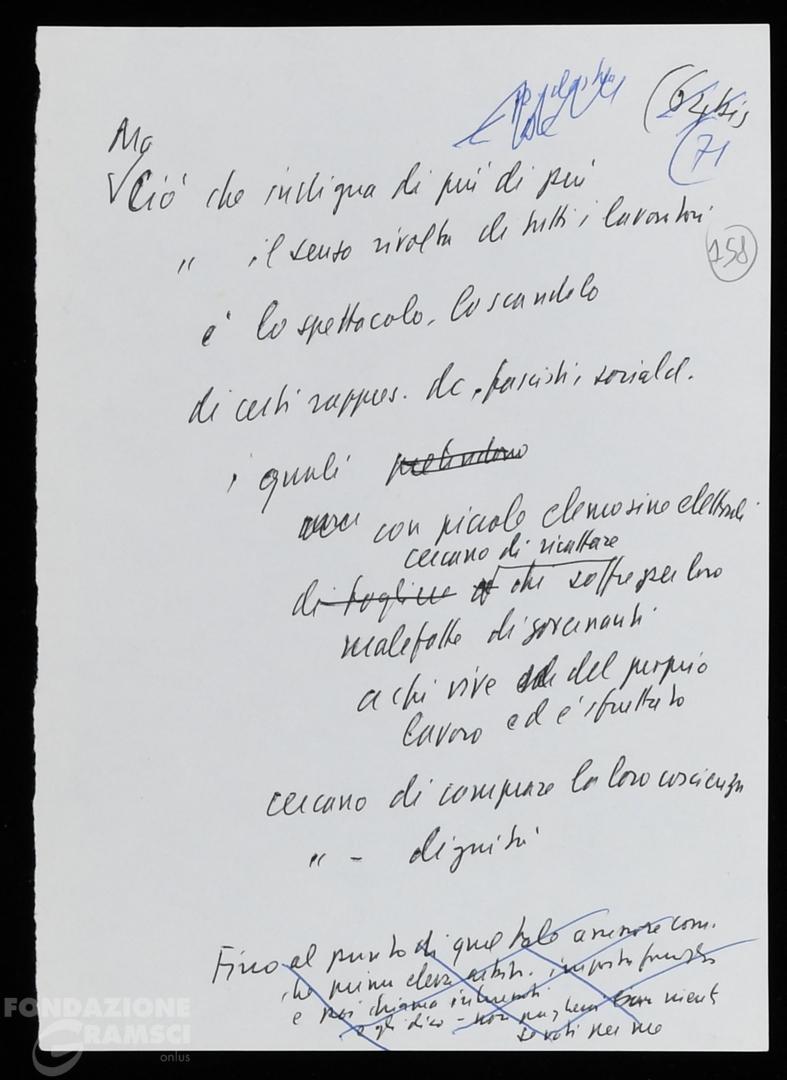 (64 bis
(71
Ma
Ciò che indigna di più di più
" il senso rivolta di tutti i lavoratori
158
è lo spettacolo, lo scandalo
di certi rappres. dc, fascisti, sociald.
i quali pretendono
con piccole elemosine elettorali
cercano di ricattare
di togliere chi soffre per loro
malefatte di governanti
a chi vive del proprio
lavoro ed è sfruttato
cercano di comprare la loro coscienza
" - dignità
Fino al punto di quel tale assessore com.
che prima eleva imposta famiglia
e poi chiama interessati
e gli dice - non paghi niente
se voti per me
FONDAZIONE
GRAMSCI
onlus